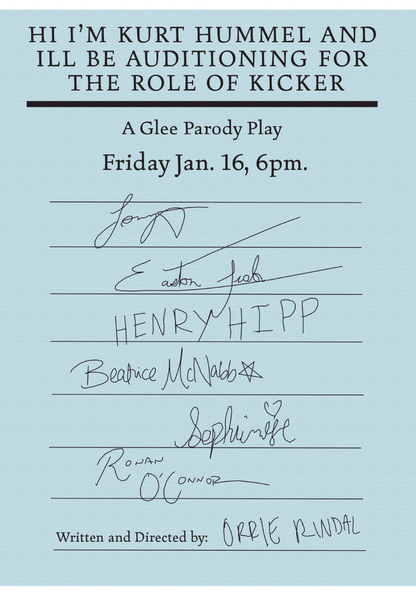 HI I'M KURT HUMMEL AND
ILL BE AUDITIONING FOR
THE ROLE OF KICKER
A Glee Parody Play
Friday Jan. 16, 6pm.
Easton
HENRY HIPP
Beatrice McNabb
RONAN
O'CONNOR
Written and Directed by: ORRIE RINDAL